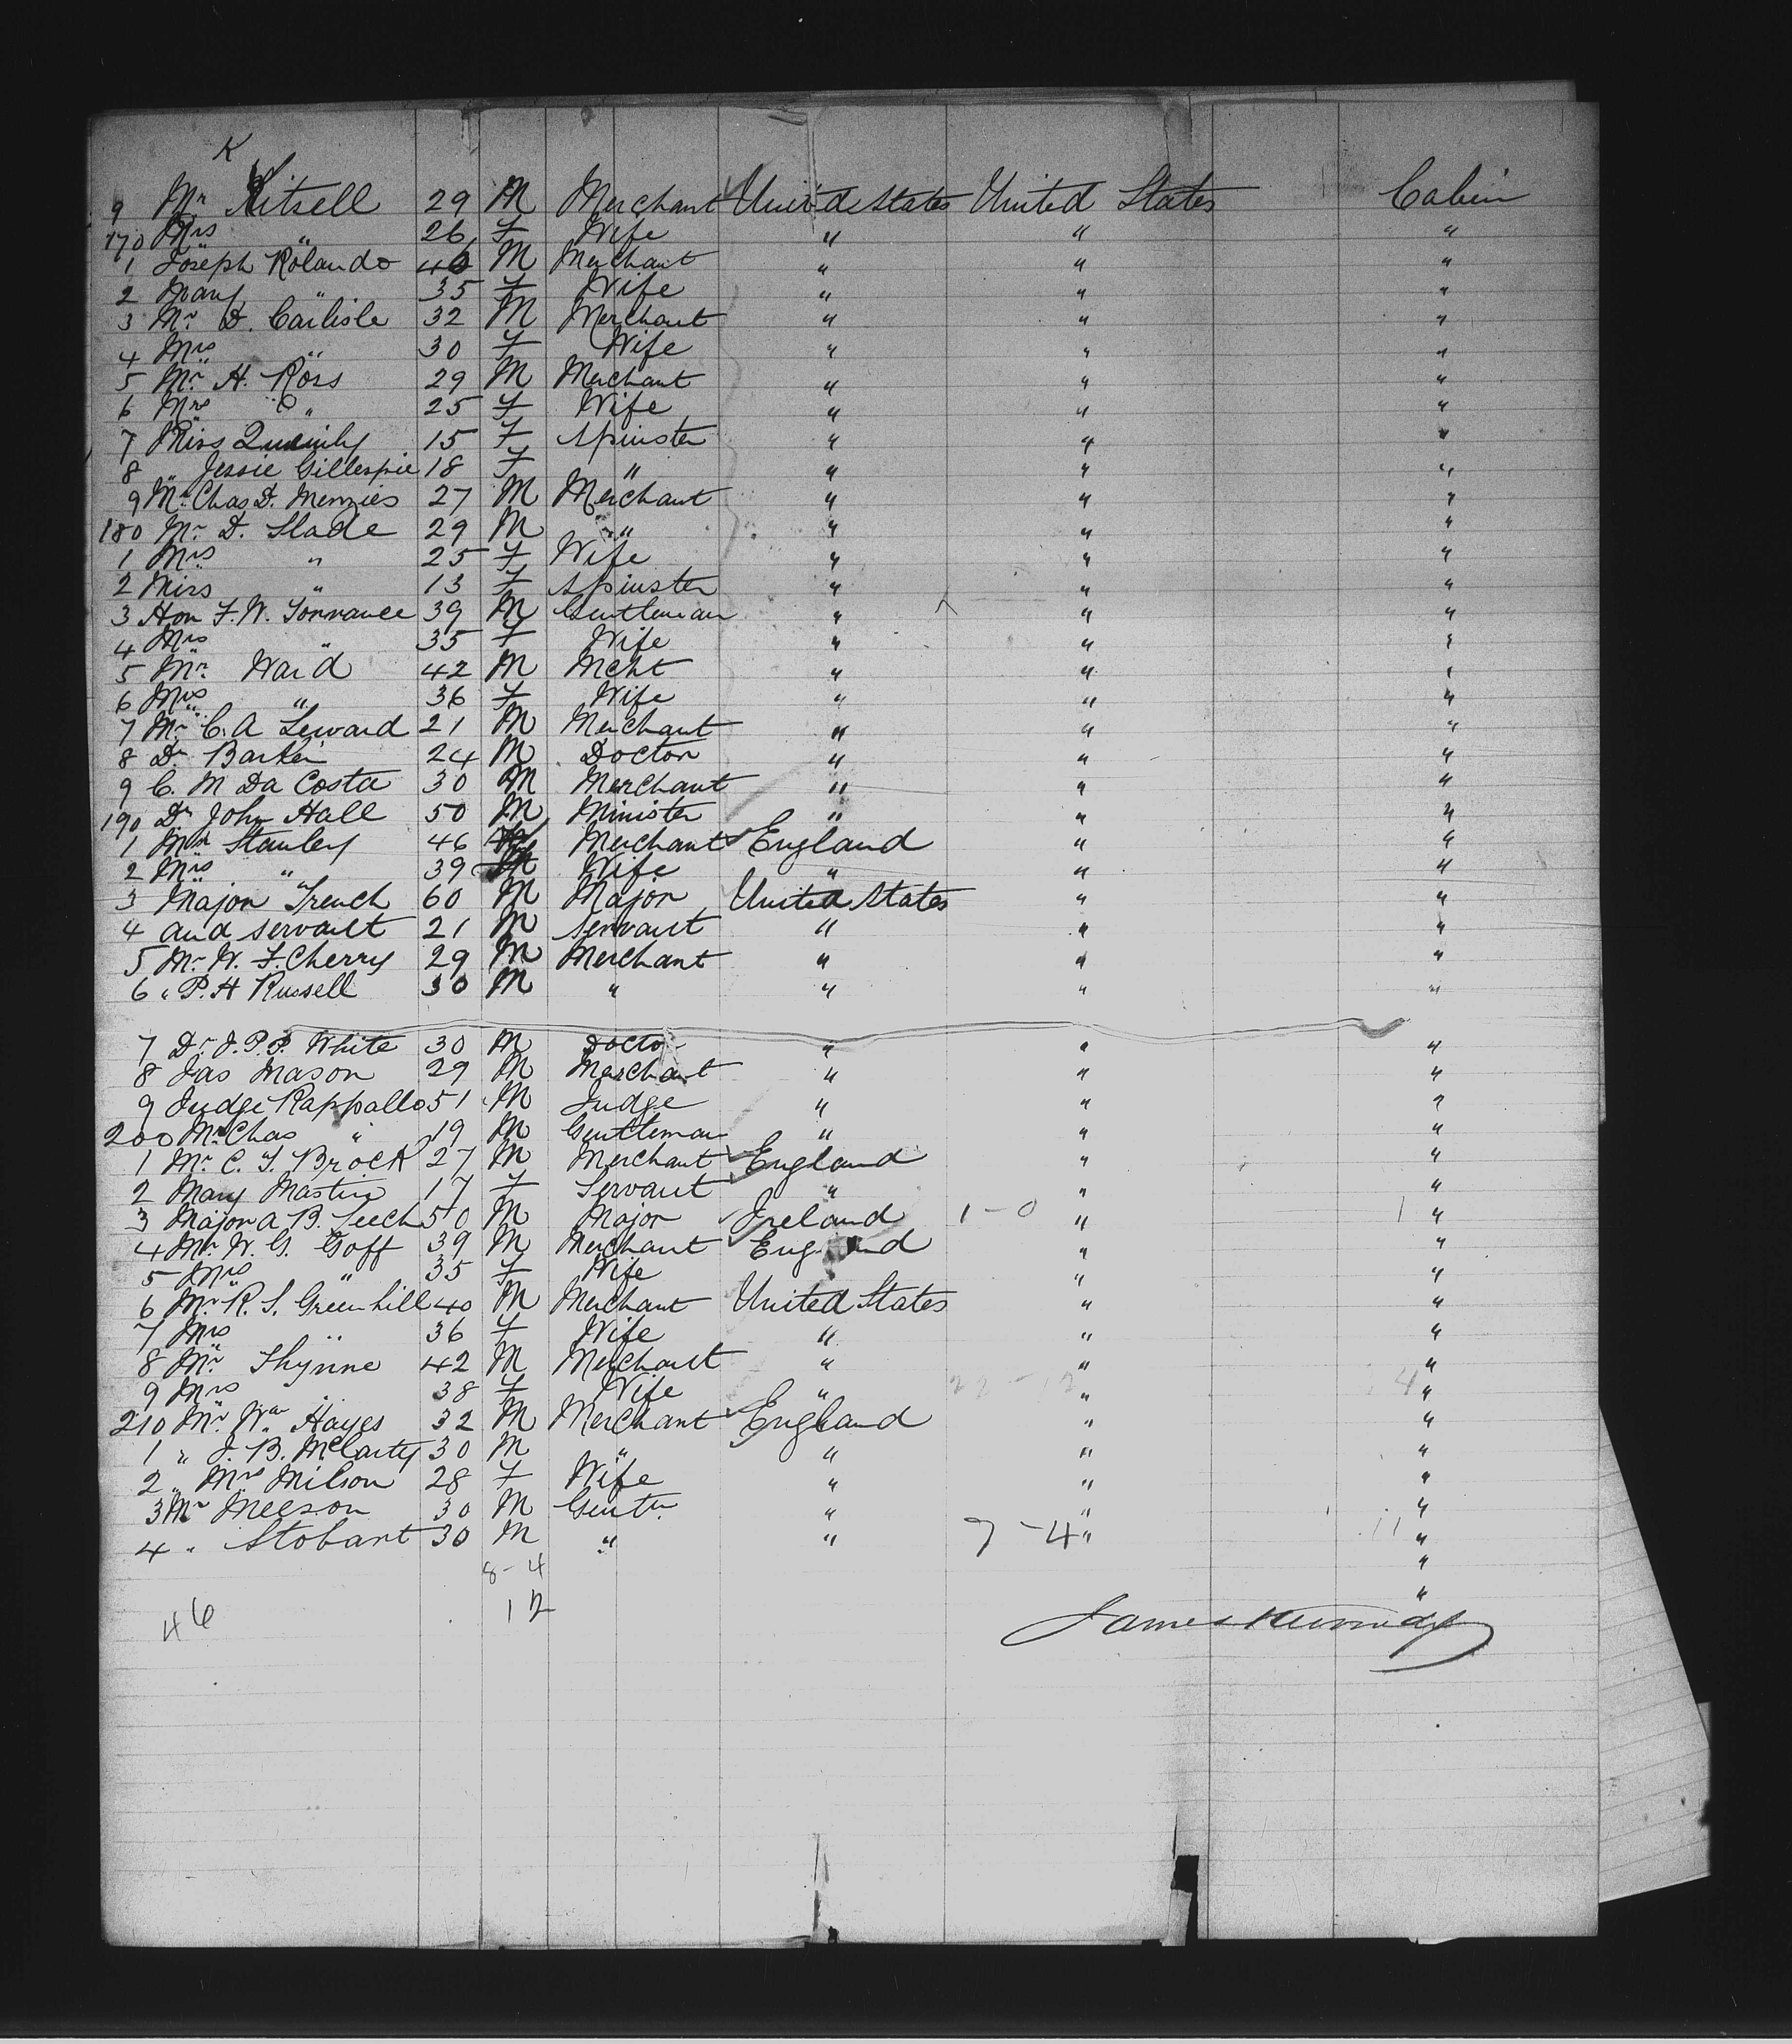 K
9 Mr Kitsell 29 M Merchant United States United States Cabin
170 Mrs " 26 F Wife " " "
1 Joseph Rolando 46 M Merchant " " "
2 Mary " 35 F Wife " " "
3 Mr D. Carlisle 32 M Merchant " " "
4 Mrs " 30 F Wife " " "
5 Mr H. Ross 29 M Merchant " " "
6 Mrs " 25 F Wife " " "
7 Miss 15 F Spinster " " "
8 " Jessie Gillespie 18 F " " " "
9 Mr Chas D. Menzies 27 M Merchant " " "
180 Mr D. Slade 29 M " " " "
1 Mrs " 25 F Wife " " "
2 Miss " 13 F Spinster " " "
3 Hon F. W. Torrance 39 M Gentleman " " "
4 Mrs " 35 F Wife " " "
5 Mr Ward 42 M Mcht " " "
6 Mrs " 36 F Wife " " "
7 Mr C. A Seward 21 M Merchant " " "
8 Dr Barker 24 M Doctor " " "
9 C. M Da Costa 30 M Merchant " " "
190 Dr John Hall 50 M Minister " " "
1 Mr Stanley 46 M Merchant England " "
2 Mrs " 39 Wife " " "
3 Major French 60 M Major United States " "
4 and servant 21 M Servant " " "
5 Mr W. F. Cherry 29 M Merchant " " "
6 " P. H Russell 30 M " " " "
7 Dr J. P. P. White 30 M Doctor " " "
8 Jas Mason 29 M Merchant " " "
9 Judge Rappallo 51 M Judge " " "
200 Mr Chas " 19 M Gentleman " " "
1 Mr C. T. Brock 27 M Merchant England " "
2 Mary Martin 17 F Servant " " "
3 Major A B. Leech 50 M Major Ireland 1-0 " 1 "
4 Mr W. G. Goff 39 M Merchant England " "
5 Mrs " 35 F Wife " "
6 Mr R. S. Greenhill 40 M Merchant United States " "
7 Mrs " 36 F Wife " " "
8 Mr Thynne 42 M Merchant " " "
9 Mrs 38 F Wife " 22-12 " "
210 Mr Wm Hayes 32 M Merchant England " "
1 " J. B. McCarty 30 M " " " "
2 " Mrs Milson 28 F Wife " " "
3 Mr Meeson 30 M Gentn " " "
4 " Stobart 30 M " " 7-4 " 11 "
8-4 "
46 12 "
James Kennedy